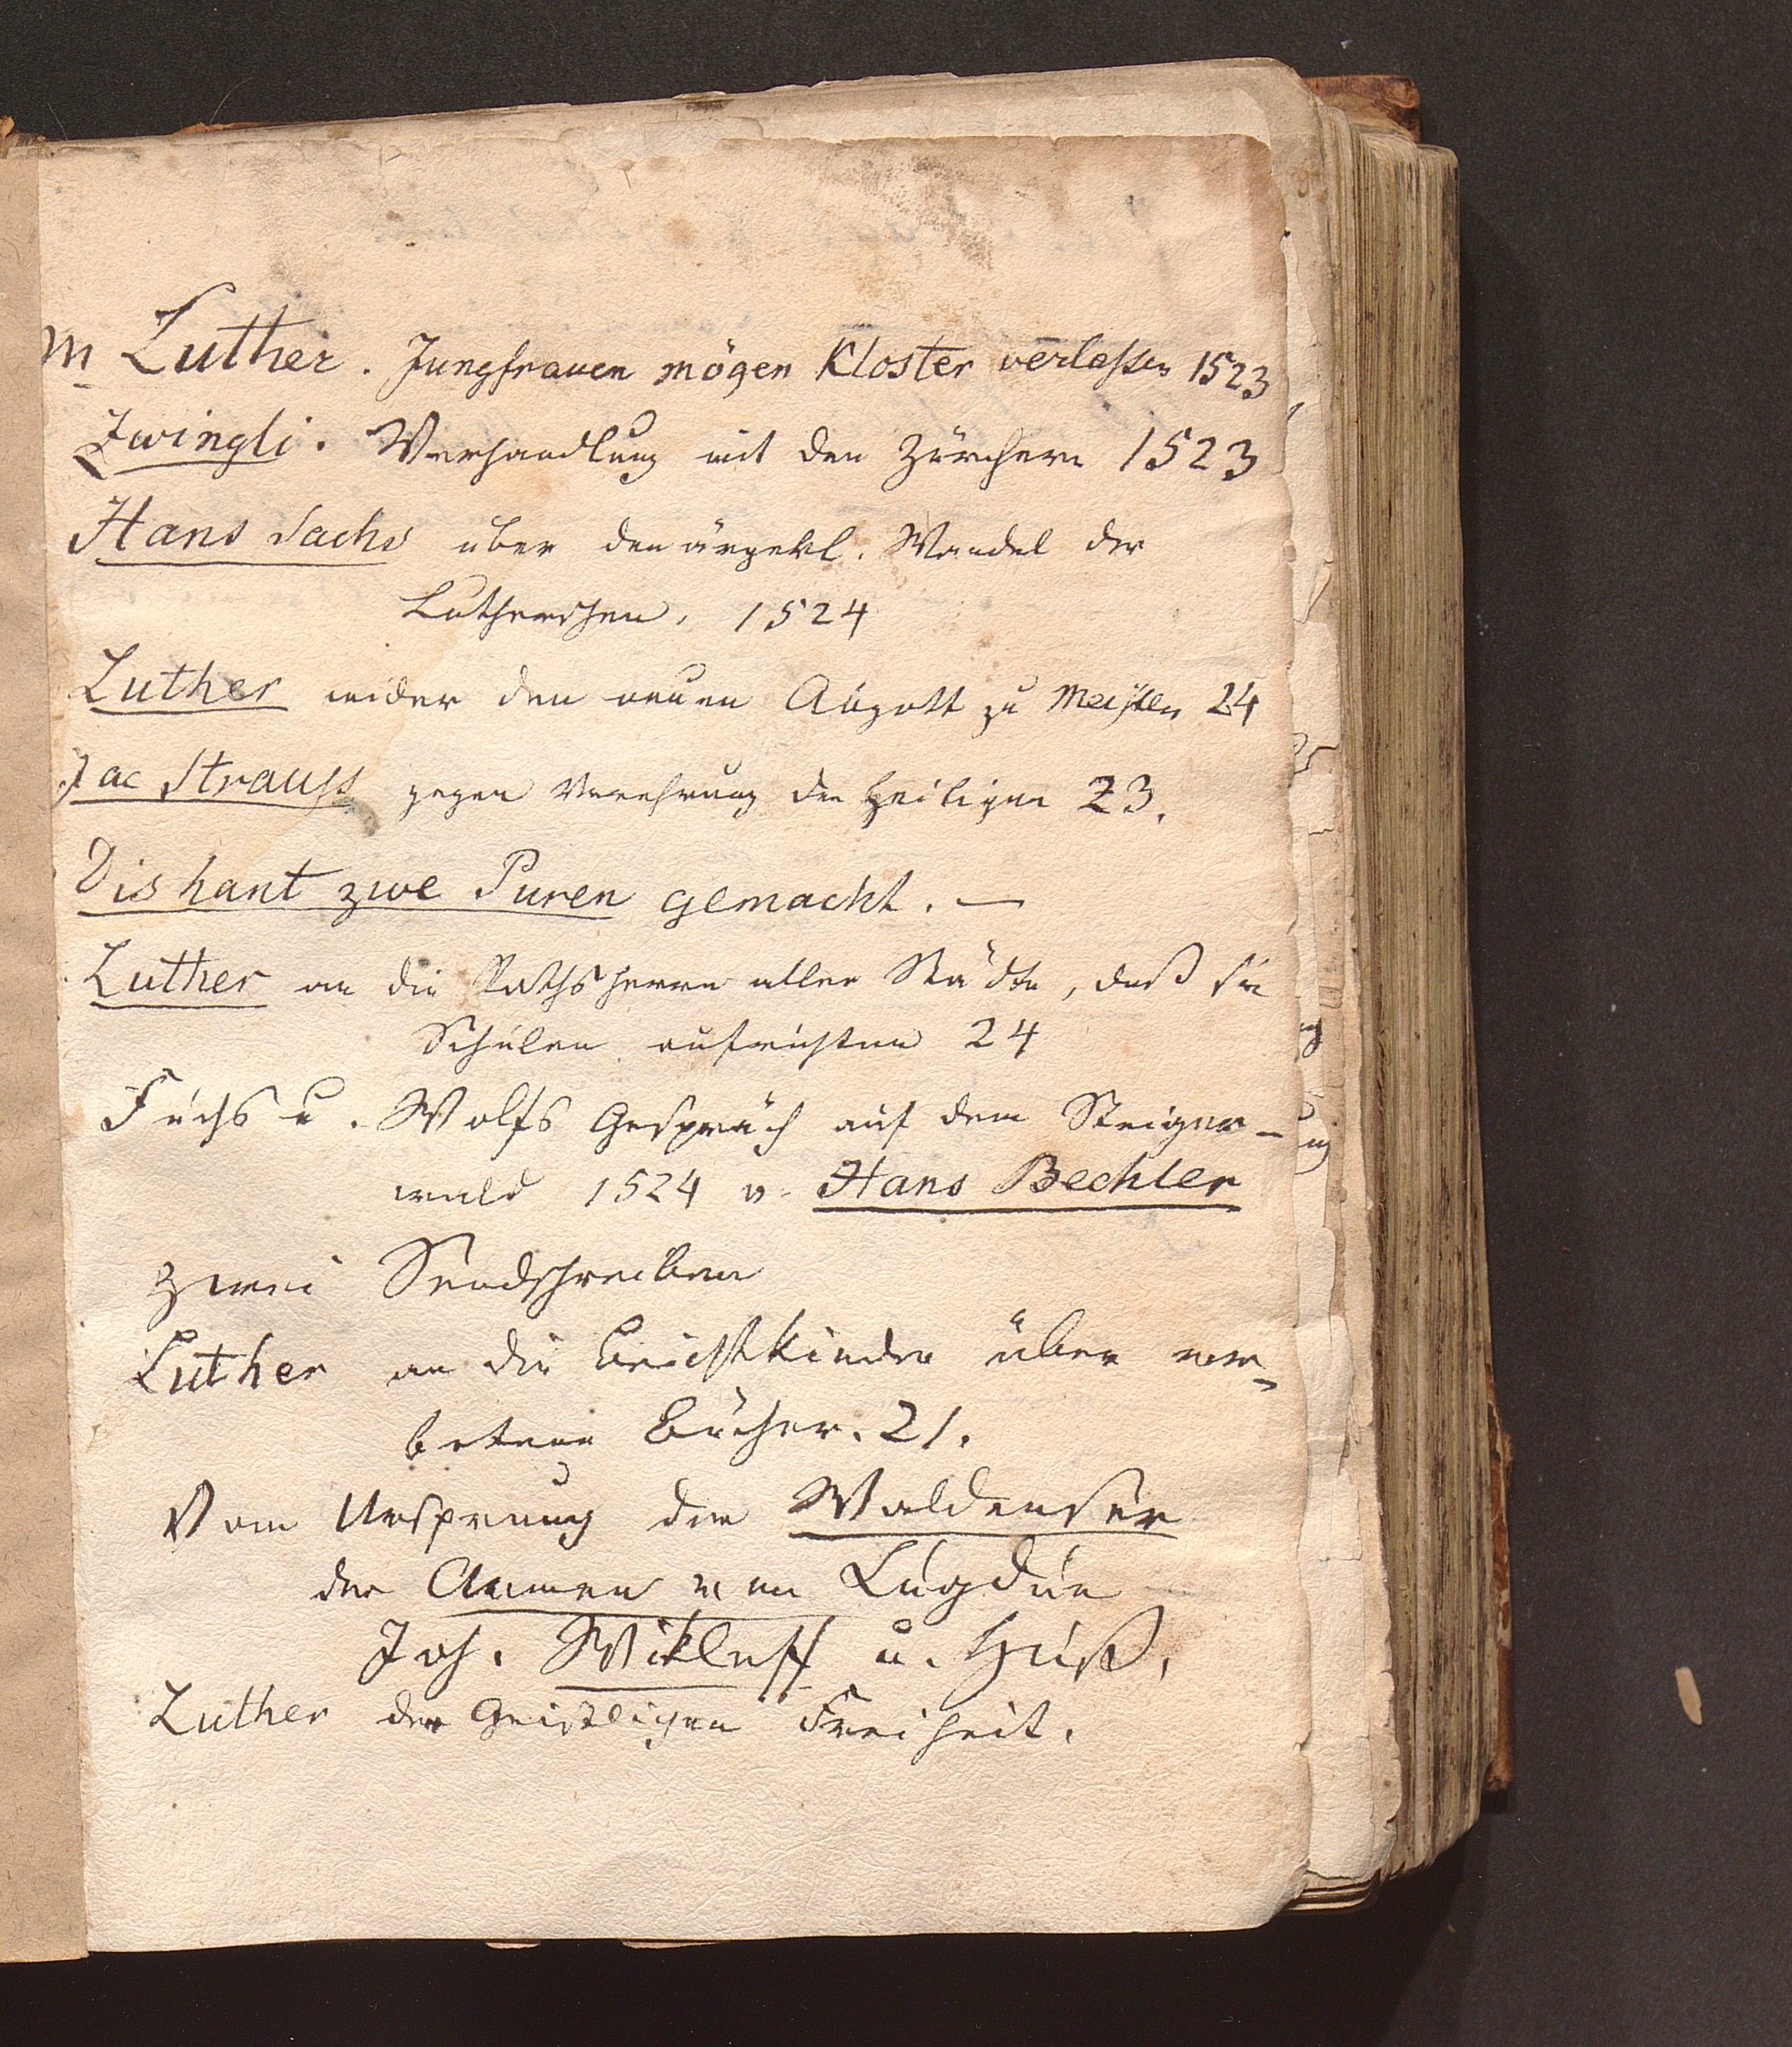 M Luther. Jungfrauen mögen Kloster verlassen 1523
Zwingli. Verhandlung mit den Zürchern 1523
Hans Sachs über den ärgerl. Wandel der
Lutherschen, 1524
Luther wider den neuen Abgott zu Meißen 24
Jac Strauss gegen Verehrung der Heiligen 23.
Dis hant zwe Puren gemacht. —
Luther an die Rathsherrn aller Städte, daß sie
Schulen aufrichten 24
Fuchs u. Wolfs Gespräch auf dem Steiger-
wald 1524 v. Hans Bechler
Zwei Sendschreiben
Luther an die Beichtkinder über ver-
botene Bücher. 21.
Vom Ursprung der Waldenser
der Armen von Lugdun
Joh. Wikleff u. Huß.
Luther der Geistligen Freiheit.